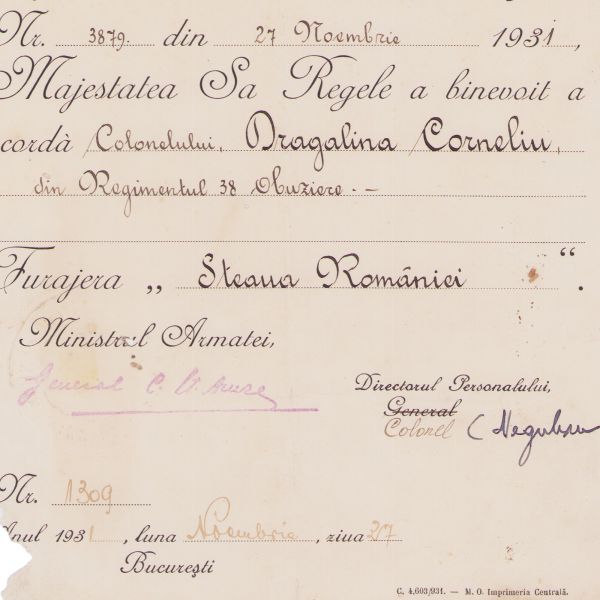 Nr. 3879. din 27 Noembrie 1931,
Majestatea Sa Regele a binevoit a
cordà Colonelului, Dragalina Corneliu,
din Regimentul 38 Obuziere. -
Furajera „ Steaua României “.
Ministrul Armatei,
General C.
Directorul Personalului,
General
Colonel C Negulescu
Nr. 1309
Anul 1931, luna Noembrie, ziua 27
Bucureşti
C. 4.603/931. — M. O. Imprimeria Centrală.